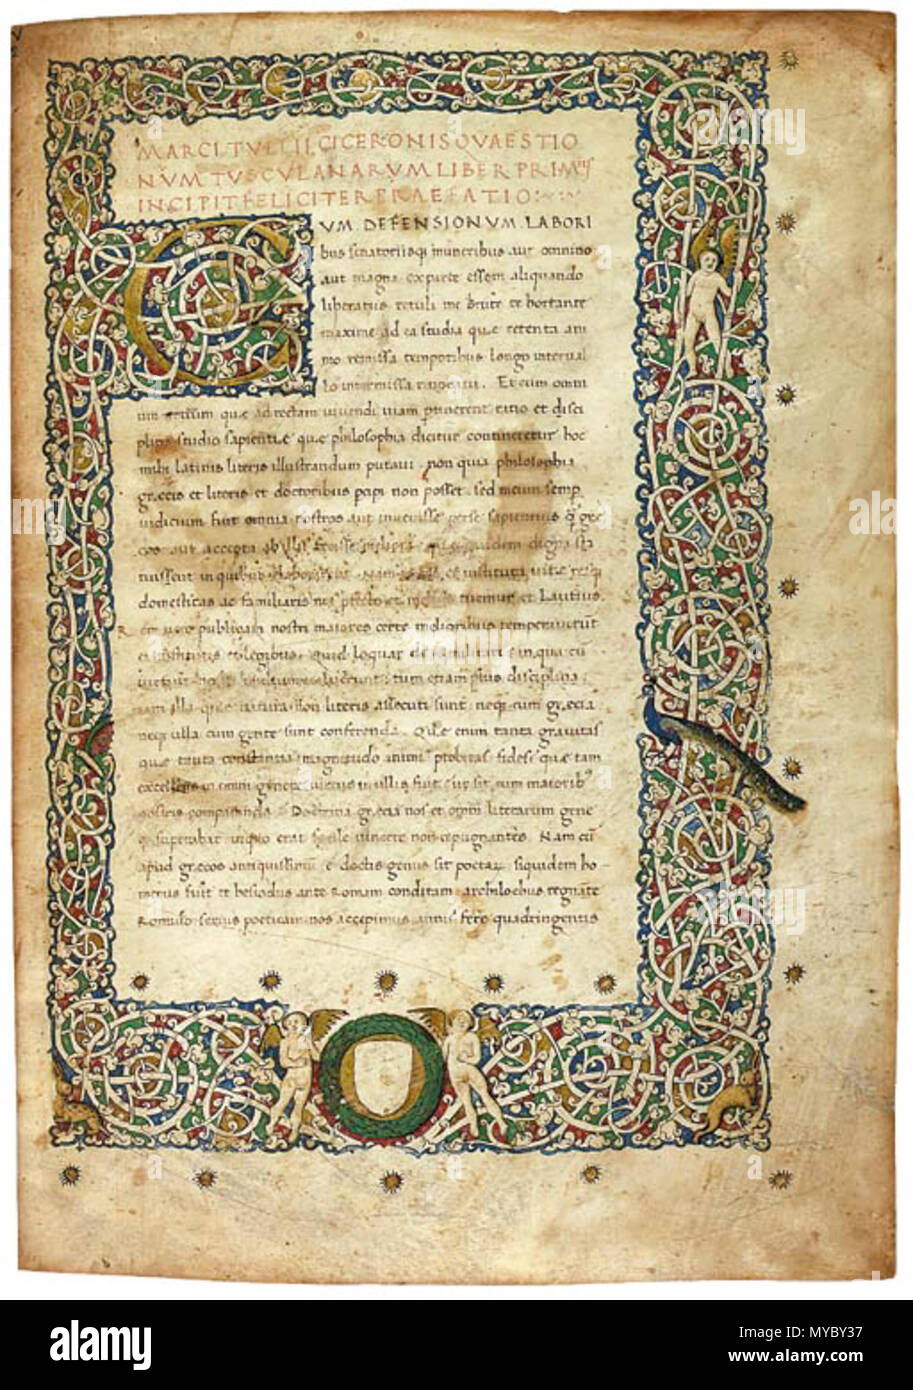 MARCI TVLLII CICERONIS QVAESTIO
NVM TVSCVLANARVM LIBER PRIMVS
INCIPIT FELICITER PRAEFATIO
CUM DEFENSIONUM LABORI
bus senatoriisq; muneribus aut omnino
aut magna ex parte essem aliquando
liberatus retuli me brute te hortante
maxime ad ea studia quæ retenta ani
mo remissa temporibus longo interual
lo intermissa reuocaui. Et cum omni
um artium quæ ad rectam uiuendi uiam
studio sapientiæ quæ philosophia dicitur contineretur hoc
mihi latinis literis illustrandum putaui. non quia philosophia
græcis et literis et doctoribus non posset. sed meum semp
iudicium fuit omnia nostros aut inuenisse per se sapientius
aut accepta
in quibus
domesticas ac familiaris et Lautius.
publicam nostri maiores certe melioribus temperuerunt
et legibus. Quid loquar de re militari in qua cū
tum etiam plus disciplina
iam illa quæ natura non literis assecuti sunt neq; cum græcia
neq; ulla cum gente sunt conferenda. Quæ enim tanta grauitas
quæ tanta constantia magnitudo animi probitas fides quæ tam
excellens in omni genere uirtus in ullis fuit ut sit cum maiorib;
nostris comparanda. Doctrina græcia nos et omni literarum gene
superabat in quo erat facile uincere non repugnantes. Nam cū
apud græcos antiquissimū e doctis genus sit poetar siquidem ho
merus fuit et hesiodus ante Romam conditam archilochus regnāte
Romulo serius poeticam nos accepimus annis fere quadringentis
alamy
alamy
Image ID: MYBY37
www.alamy.com